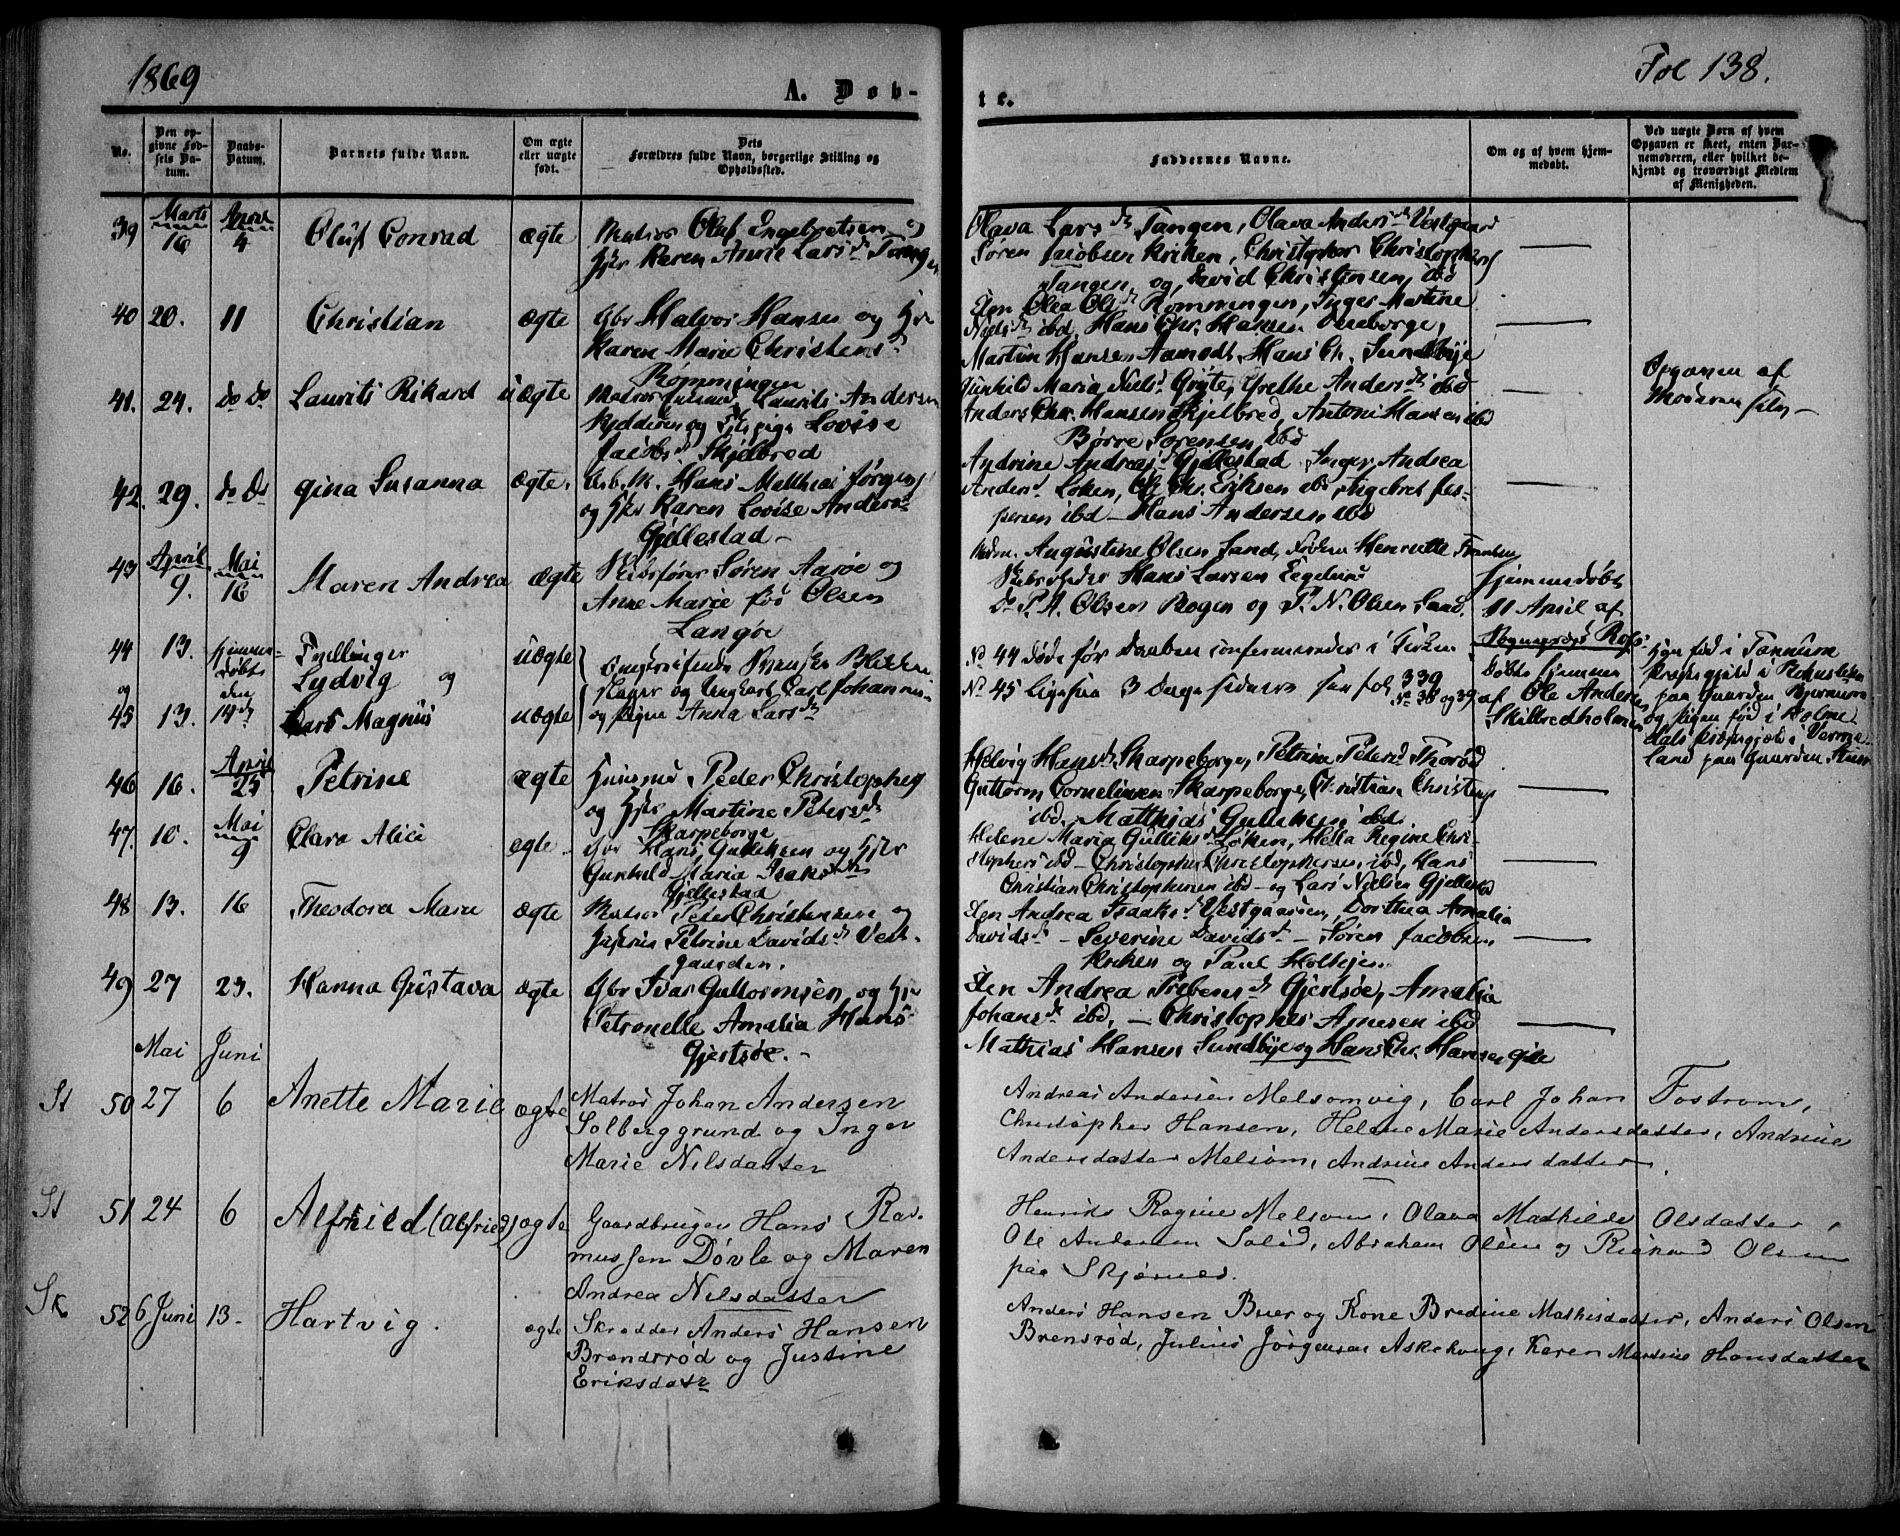 1869
Fol 138.
A. Døb-
te.
No.
Den op-
givne Fød-
sels Da-
tum.
Daabs-
Datum.
Barnets fulde Navn.
Om ægte
eller uægte
født.
Dets
Forældres fulde Navn, borgerlige Stilling og
Opholdssted.
Faddernes Navne.
Om og af hvem hjem-
medøbt.
Ved uægte Børn af hvem
Opgaven er skeet, enten Bar-
nemoderen, eller hvilket be-
kjendt og troværdigt Medlem
af Menigheden.
39 Marts 16 April 4 Oluf Conrad ægte Matros Oluf Engebretsen og
Hst Karen Anne Larsd Tangen
Olava Larsd Tangen, Olava Andersd Vestgaard
Søren Jacobsen Kriken, Christopher Christophers
Tangen og David Christensen ibd
40 20. 11 Christian ægte Gbr Halvor Hansen og Hst
Karen Marie Christensd
Rømmingen
Elen Olea Olsd Rømmingen, Inger Martine
Nielsd ibd, Hans Chr. Hansen
Martin Hansen Aamodt, Hans Ch. Sundbye
41. 24. do do Laurits Rikard uægte Matros Laurits Andersen
og Pige Lovise
Jacobsd Skjelbred
Gunhild Maria Nielsd Gryte, Grethe Andersd ibd
Anders Chr. Hansen Skjelbred, Anton Hansen ibd
Børre Sørensen ibd
Opgaven af
Moderen selv
42. 29. do Do Gina Susanna ægte. Hans Matthias Jørgens
og Hst Karen Lovise Andersd
Gjellestad
Andrine Andreasd Gjellestad, Inger Andrea
Andersd Løken, Ol. Chr. Eriksen ibd
ibd - Hans Andersen, ibd
43 April 9. Mai 16 Maren Andrea ægte Skibsfører Søren Aarøe og
Anne Marie fød Olsen
Langøe
Mdm. Augustine Olsen Sand, Henriette
Skibsreder Hans Larsen
Do P. A. Olsen Bogen og P. N. Olsen Sand.
Hjemmedøbt
11 April af
44 13. hjemme-
døbt
den
14de Tvillinger
Ludvig og uægte
og
45 13. Lars Magnus uægte
og Carl Johannes-
og Pigen Anna Larsd
No 44 døde før Daaben confirmeredes i Kirken
No 45 Ligesaa 3 Dage sidenen see fol 339
No 38 og 39
døbte hjemme
af Ole Andersen
Skilbredholmen
Han fød i Tannum
Præstegjeld i
paa Gaarden
og Pigen fød i Holme-
dals Præstegjeld i Verme-
land paa Gaarden
46 16. April 25 Petrine ægte Huusmd Peder Christophers
og Hst Martine Petersd
Skarpeborge
Helvig Hansd Skarpeborge, Petrine Petersd Thorød
Guttorm Corneliusen Skarpeborge, Christian Christens
ibd, Matthias Gulliksen ibd
47. 10. Mai 9 Clara Alice ægte Gbr Hans Gulliksen og Hst
Gunhild Maria Isaksd
Gjellestad
Helene Maria Gulliksd Løken, Hella Regine Chri-
stophersd ibd - Christopher Christophersen ibd, Hans
Christian Christophersen ibd - og Lars Nielsen Gjellestad
48 13. 16 Theodora Marie ægte Matros Peter Christensen og
Hustru Petrine Davidsd Vest-
gaarden.
Elen Andrea Isaaksd Vestgaarden, Dorthea Amalia
Davidsd - Severine Davidsd - Søren Jacobsen
Kriken og Paul Holtejen
49 27 23. Hanna Gustava ægte Gbr Ivar Guttormsen og Hst
Petronelle Amalia Hansd
Gjertsøe.
Elen Andrea Prebensd Gjertsøe, Amalia
Johansd ibd. - Christopher Arnesen ibd
Mathias Hansen Sundbye og Hans Chr. Hansen
Mai Juni
St 50 27 6 Anette Marie ægte Matros Johan Andersen
Solberggrund og Inger
Marie Nilsdatter
Andreas Andersen Melsomvig, Carl Johan Fostrom,
Christopher Hansen, Helene Marie Andersdatter, Andrine
Andersdatter Melsom, Andrine Andersdatter.
St 51 24 6 Alfhild (Alfried) ægte Gaardbruger Hans Ras-
mussen Døvle og Maren
Andrea Nilsdatter
Henrids Ragine Melsom, Olava Mathilde Olsdatter,
Ole Andersen Solid, Abraham Olsen og Rickard Olsen
paa Skjærsnes.
Sk 52 6 Juni 13. Hartvig. ægte Skrædder Anders Hansen
Brendsrød og Justine
Eriksdatr
Anders Hansen Buer og Kone Bredine Mathisdatter, Anders Olsen
Brensrød, Julius Jørgensen Askehoug, Karen Martine Hansdatter